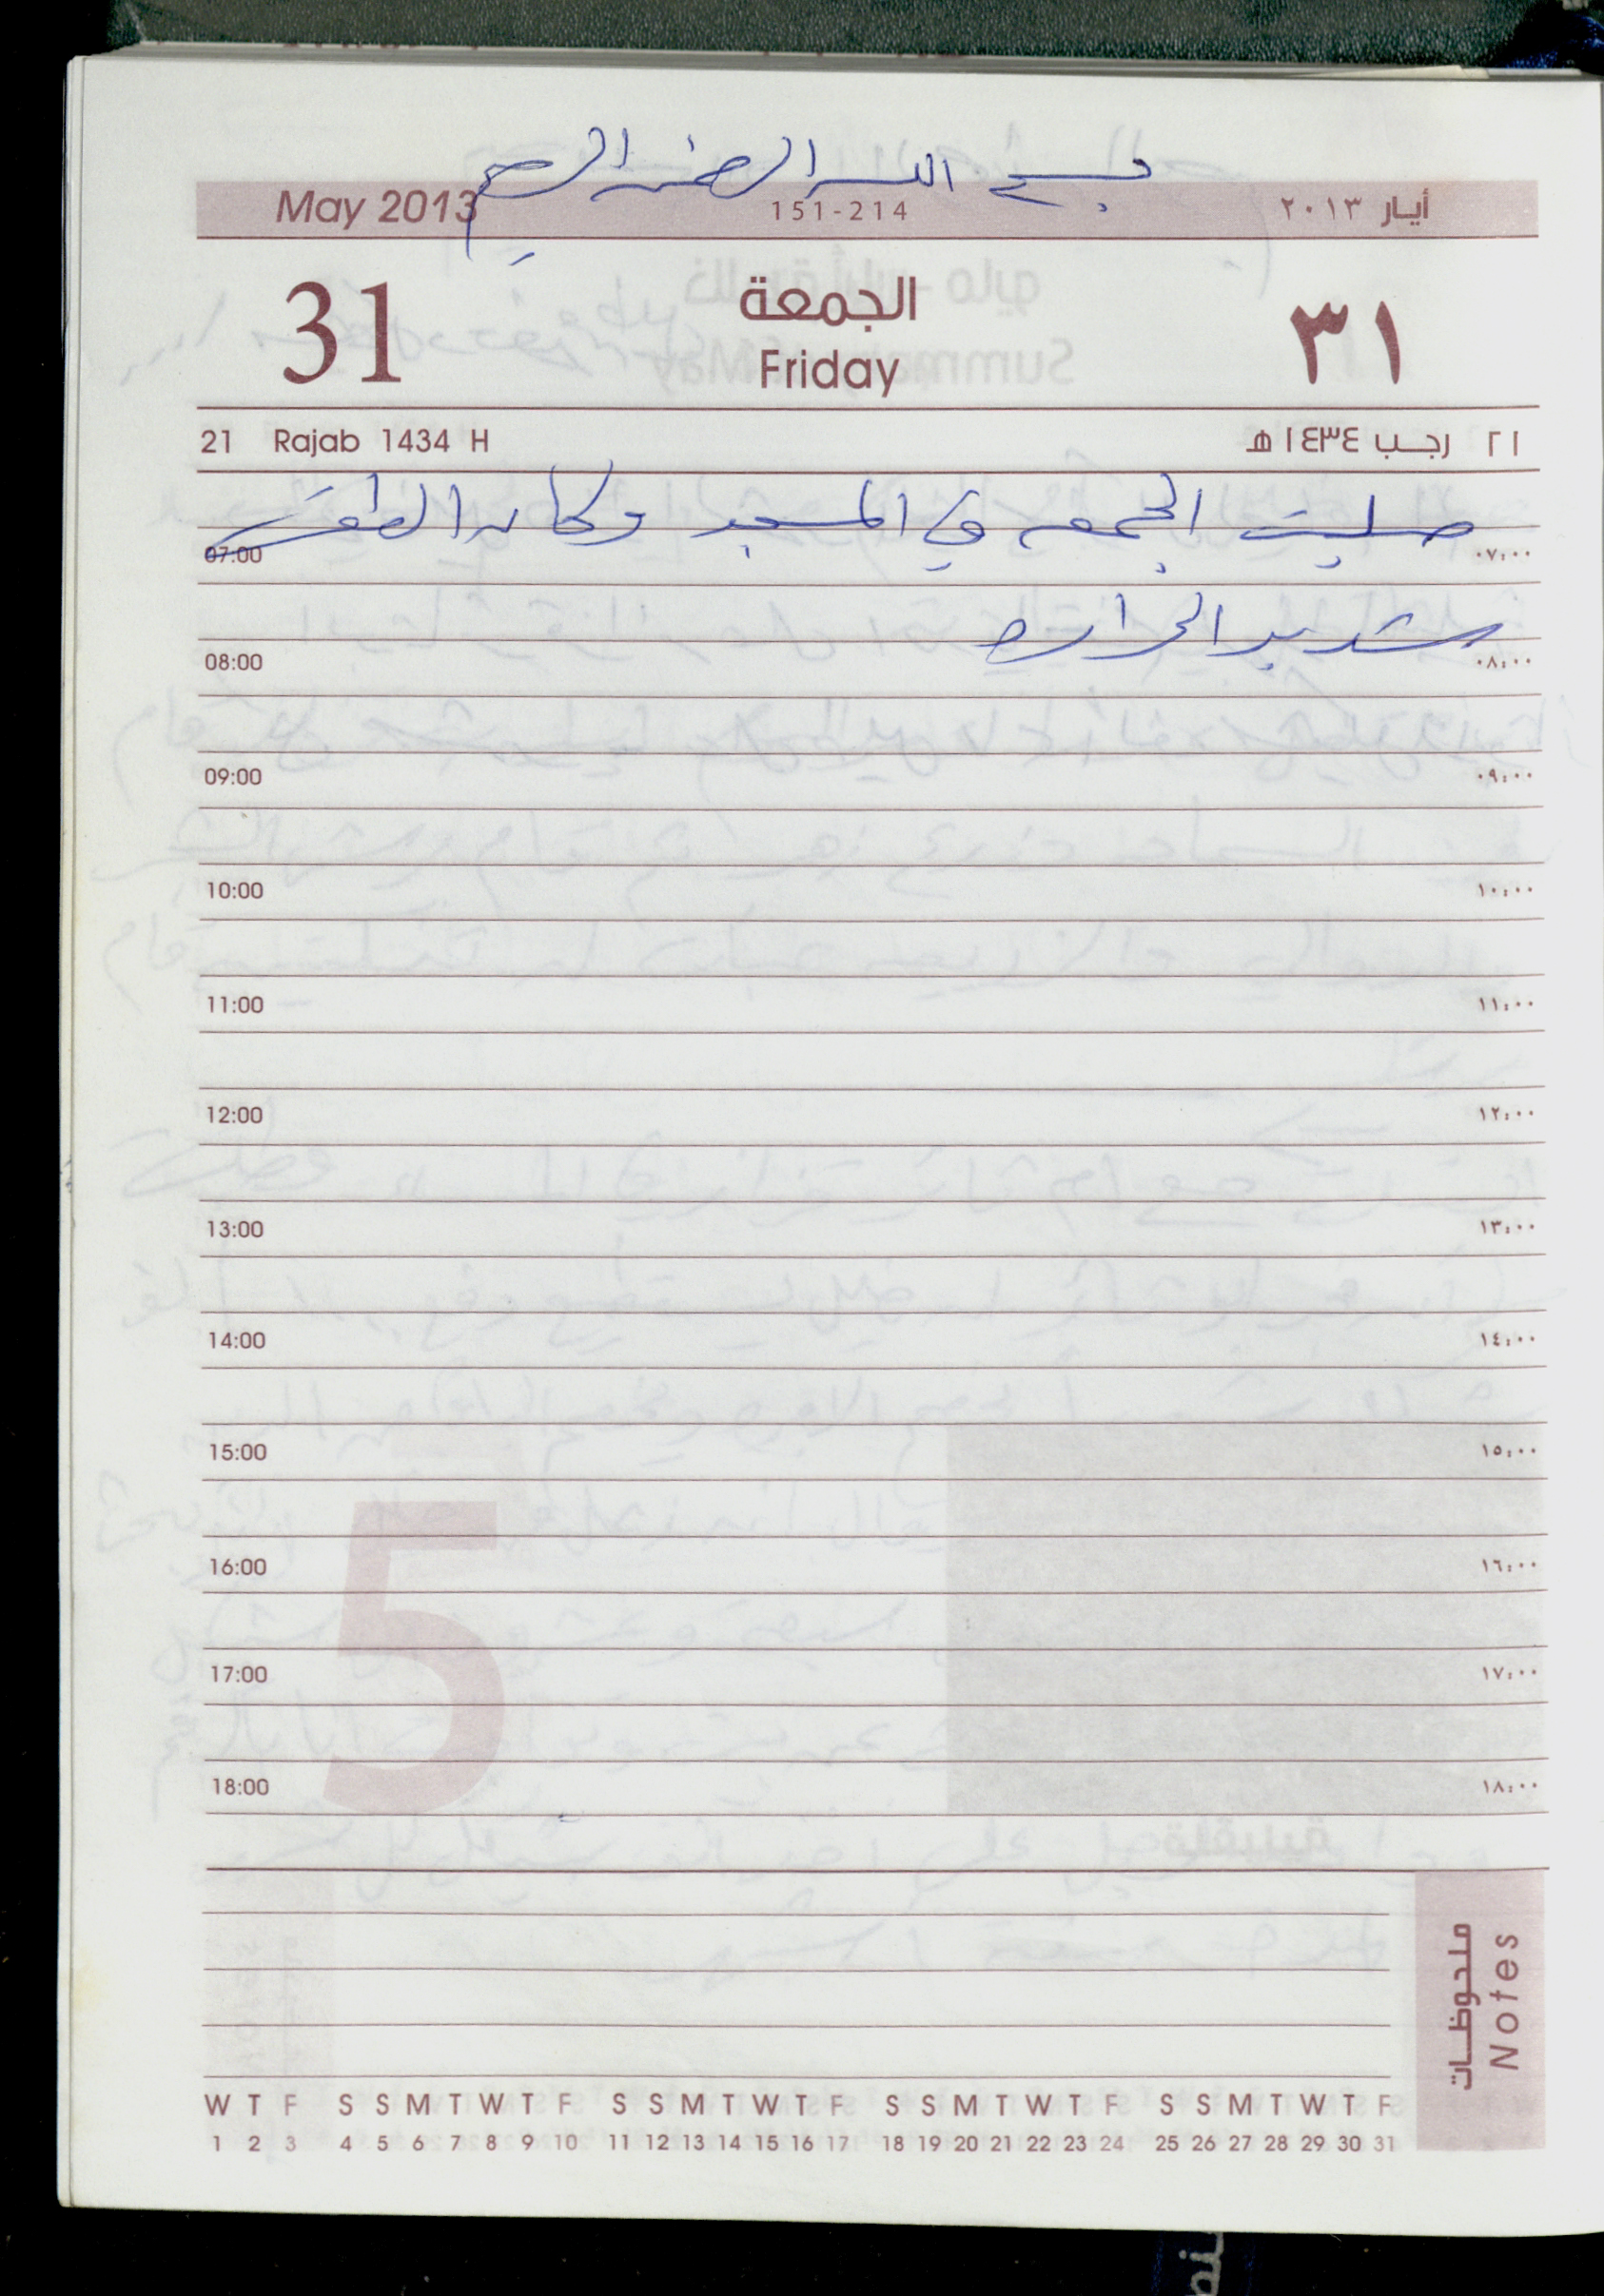 بسم الله الرحمن الرحيم
May 2013 151-214 أيـار ٢٠١٣
31 الجمعة ٣١
Friday
21 Rajab 1434 H ٢١ رجـب ١٤٣٤ هـ
صليت الجمعه في المسجد وكان الطقس
07:00 ٠٧:٠٠
شديد الحراره
08:00 ٠٨:٠٠
09:00 ٠٩:٠٠
10:00 ١٠:٠٠
11:00 ١١:٠٠
12:00 ١٢:٠٠
13:00 ١٣:٠٠
14:00 ١٤:٠٠
15:00 ١٥:٠٠
16:00 ١٦:٠٠
17:00 ١٧:٠٠
18:00 ١٨:٠٠
5
ملحوظات
Notes
W T F S S M T W T F S S M T W T F S S M T W T F S S M T W T F
1 2 3 4 5 6 7 8 9 10 11 12 13 14 15 16 17 18 19 20 21 22 23 24 25 26 27 28 29 30 31